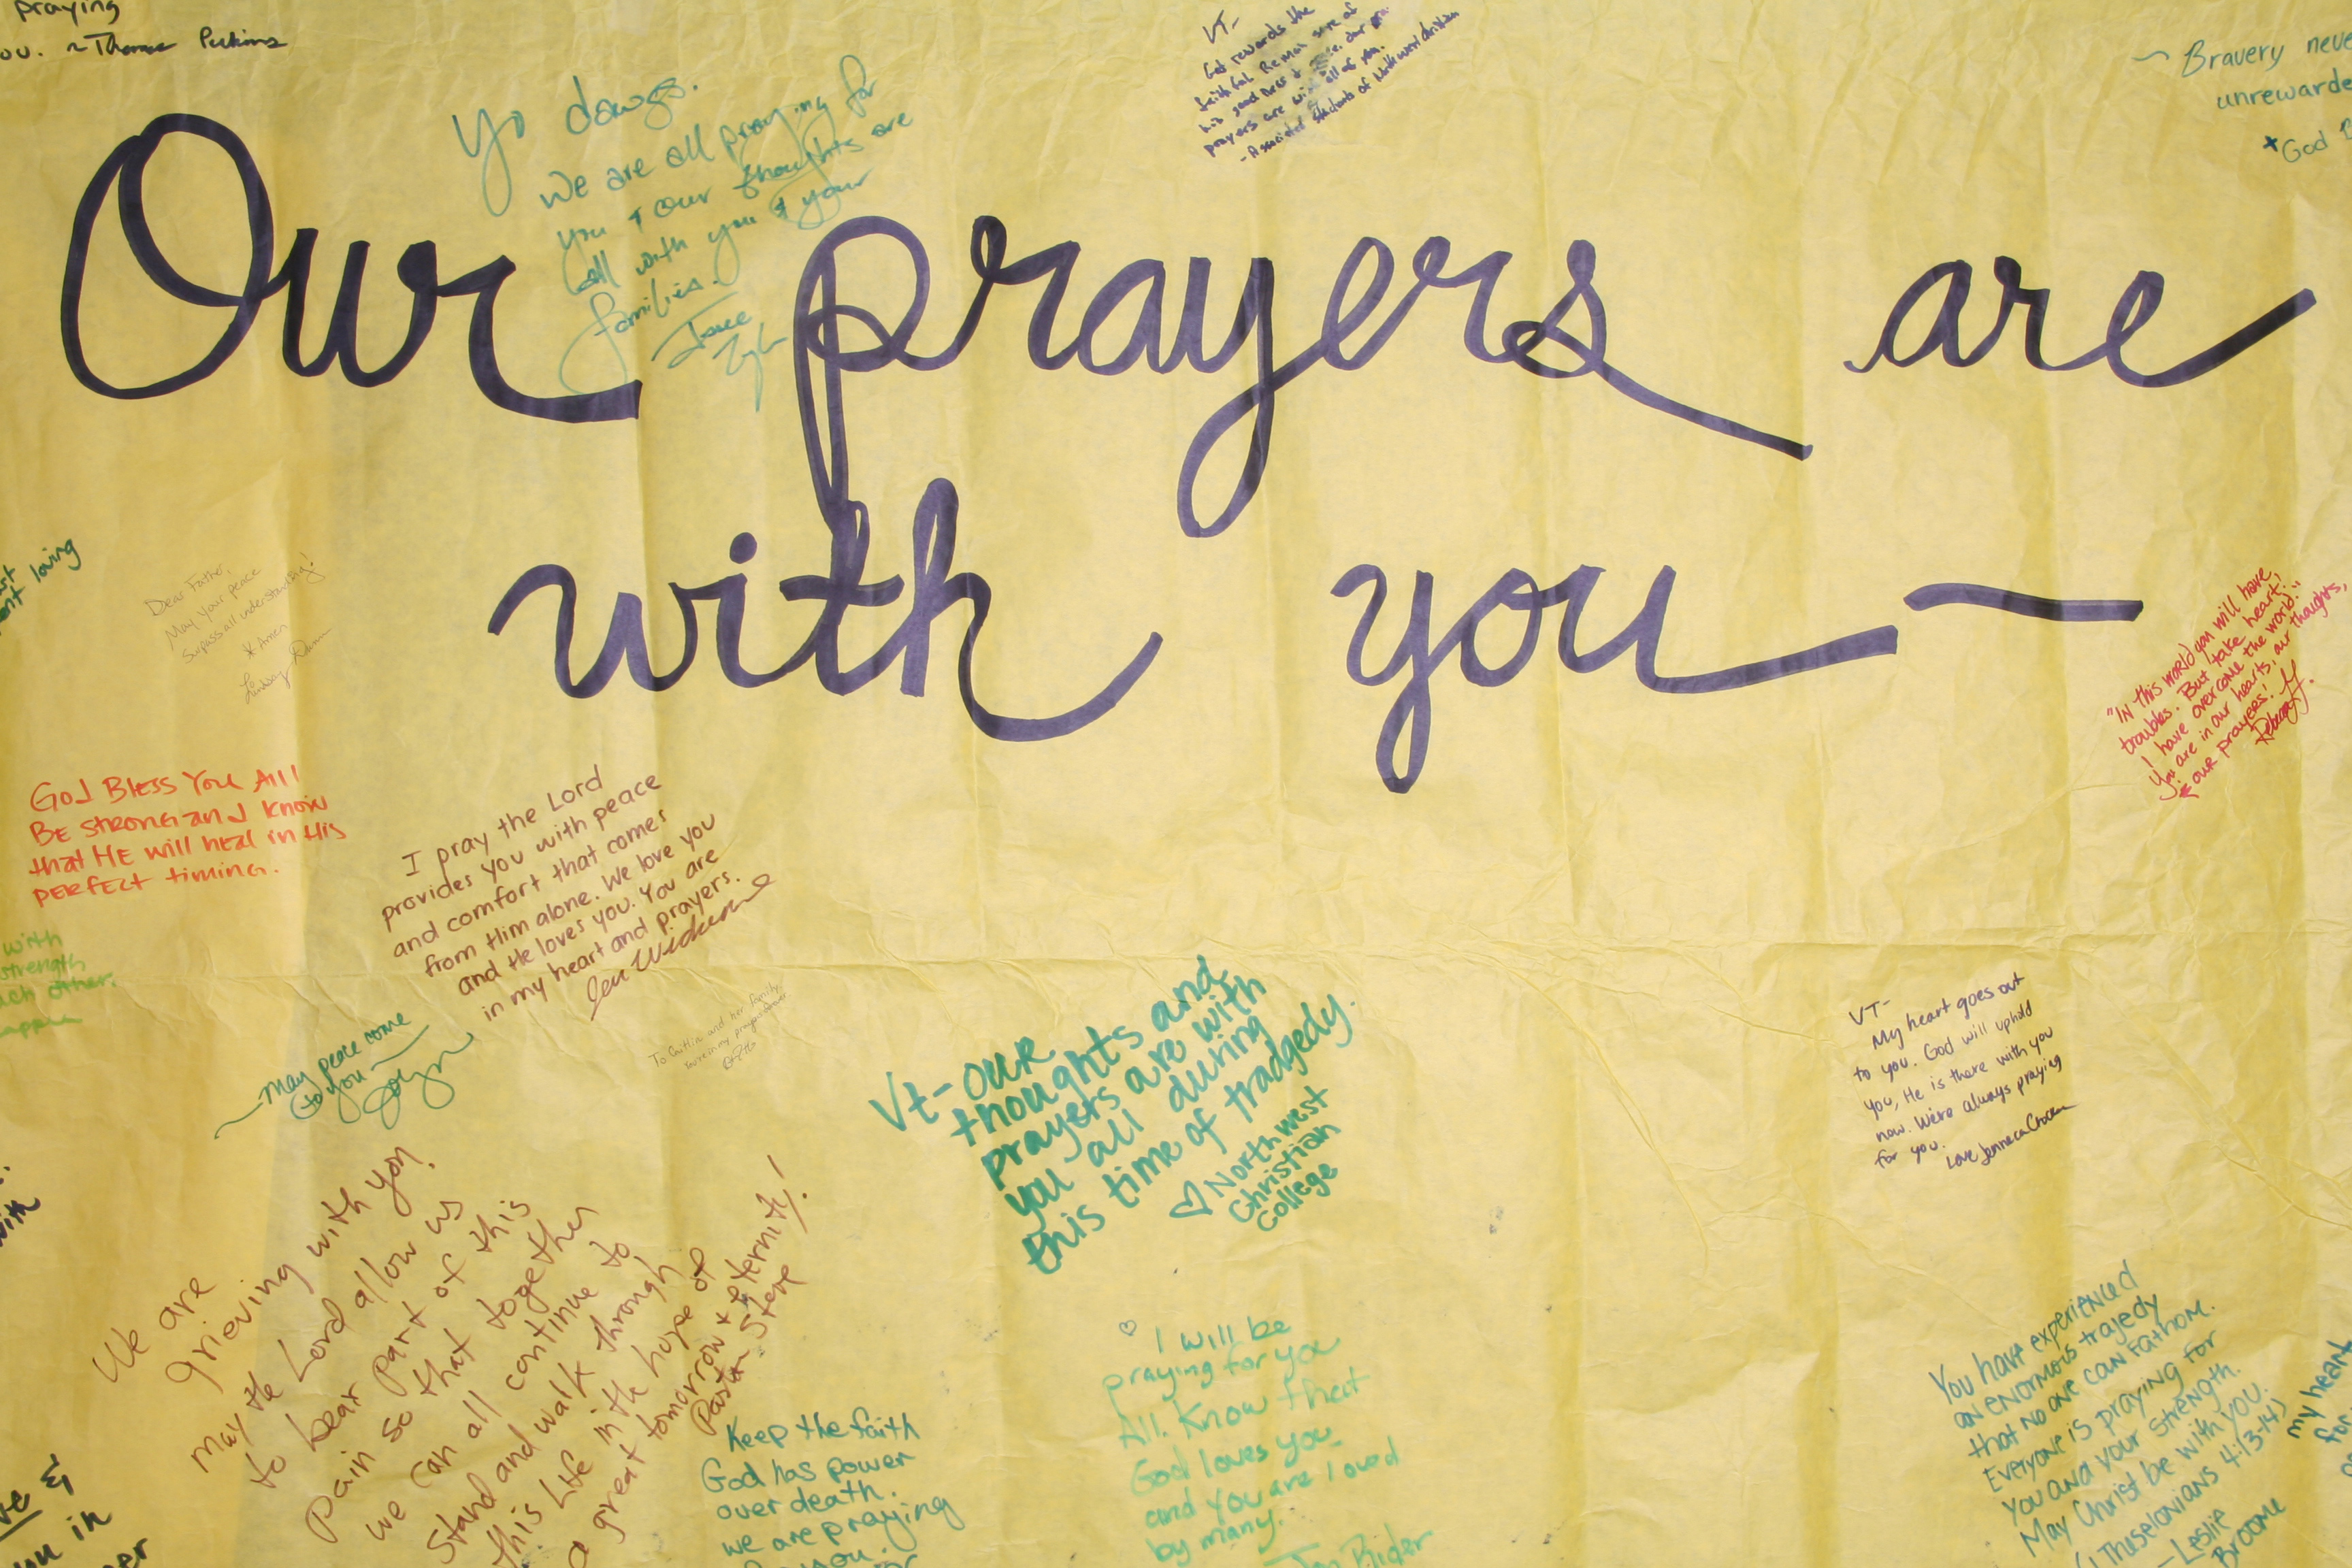 praying
ou. ~Thomas Perkins
Yo dawgs.
We are all praying for
you & our thoughts are
all with you & your
families.
VT-
God rewards the
faithful. Remain sure of
his goodness &
prayers are with all of you.
- Associated Students of Northwest Christian
~ Bravery neve
unrewarde
+God B
Our prayers are
with you —
loving
Dear Father,
May your peace
surpass all understanding!
* Amen
Lindsay
"IN this world you will have
troubles. But take heart!
I have overcome the world."
You are in our hearts, our thoughts,
& our prayers!
GOD BLESS YOU All
BE STRONG and know
that HE will heal in His
PERFECT timing.
I pray the Lord
provides you with peace
and comfort that comes
from Him alone. We love you
and He loves you. You are
in my heart and prayers.
with
strength
ach other.
~ May peace come
to you —
To Caitlin and her family
You're in my prayers forever
Vt- OUR
thoughts and
prayers are with
you all during
this time of tradgedy.
♡ Northwest
Christian
College
VT-
My heart goes out
to you. God will uphold
you, He is there with you
now. We're always praying
for you.
Love Jenneca
We are
grieving with you.
may the Lord allow us
to bear part of this
pain so that together
we can all continue to
Stand and walk through
this life in the hope of
a great tomorrow & eternity!
Pastor Steve
with
Keep the faith
God has power
over death.
we are praying
you.
♡ I will be
praying for you
All. Know that
God loves you
and you are loved
by many.
You have experienced
an enormous tragedy
that no one can fathom.
Everyone is praying for
you and your strength.
May Christ be with you.
(1 Thaselonians 4:13-14)
- Leslie
Broome
my heart
ve &
ou in
er